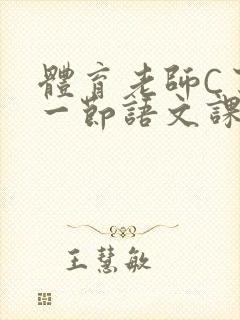 體育老師C
一節語文課
王慧敏